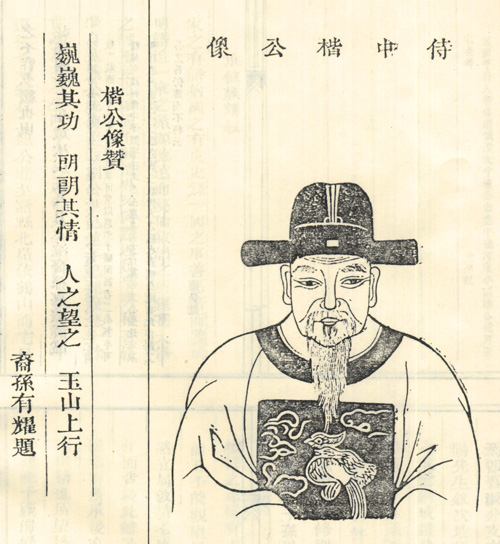 侍中楷公像
楷公像贊
巍巍其功 朗朗其情 人之望之 玉山上行
裔孫有耀題